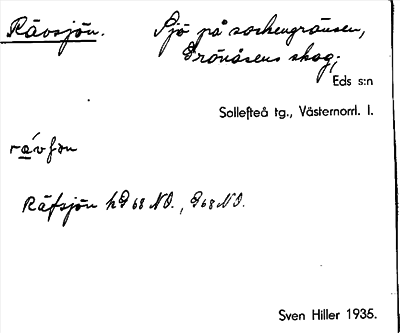 Rävsjön. Sjö på sockengränsen,
Grönåsens skog;
Eds s:n
Sollefteå tg., Västernorrl. l.
rǻvʃɵn
Räfsjön
Sven Hiller 1935.